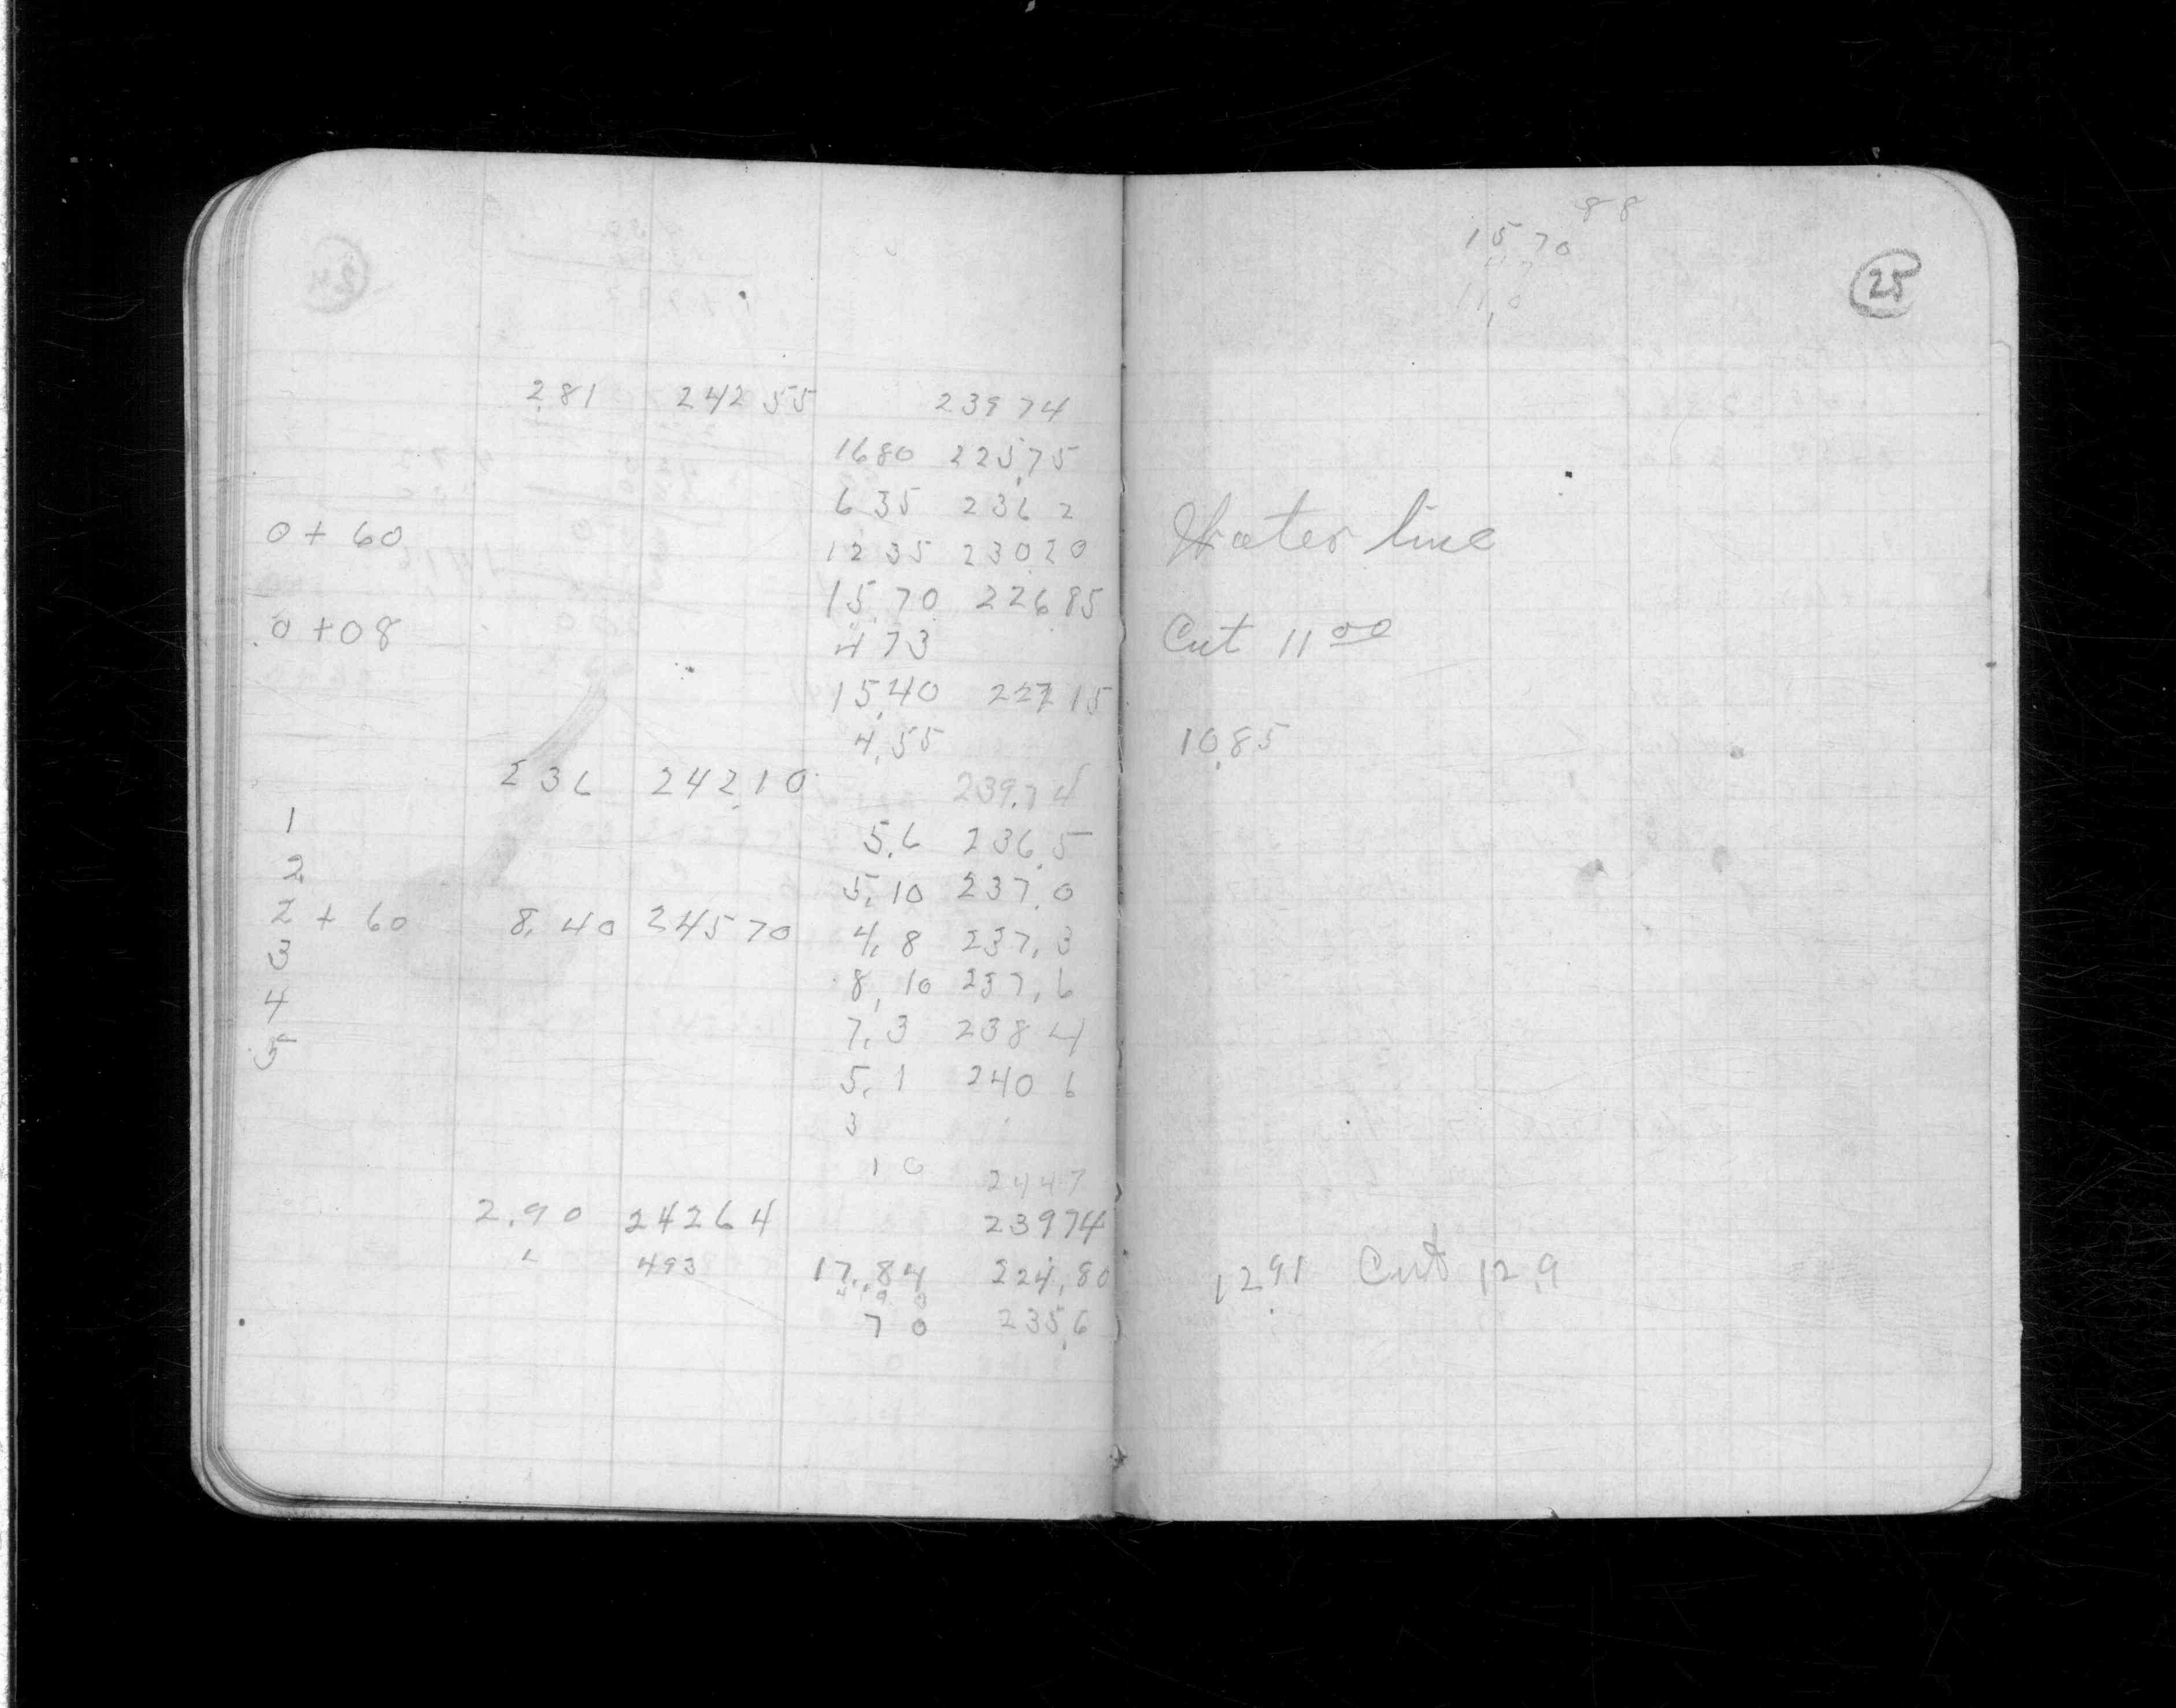 281 24255 23974
1680 225,75
6 35 236 2
0 + 60 12 35 230 20
15 70 226 85
0 + 08 4 73
15,40 227 15
4,55
236 242,10 239.74
1 5.6 236.5
2 5.10 237.0
2 + 60 8.40 24570 4.8 237.3
3 8,10 237,6
4 7.3 238 4
5 5.1 240 6
3
1 0 2447
2.90 24264 23974
493 17.84 224,80
4 9 3
7 0 235,6
88
15 70
4 7
11,0
25
Water line
Cut 11 00
10.85
12.91 Cut 12.9